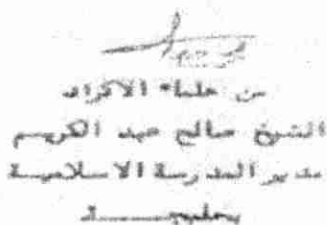 من علماء الاكراد
الشيخ صالح عبد الكريم
مدير المدرسة الاسلامية
بحلبجـــــة